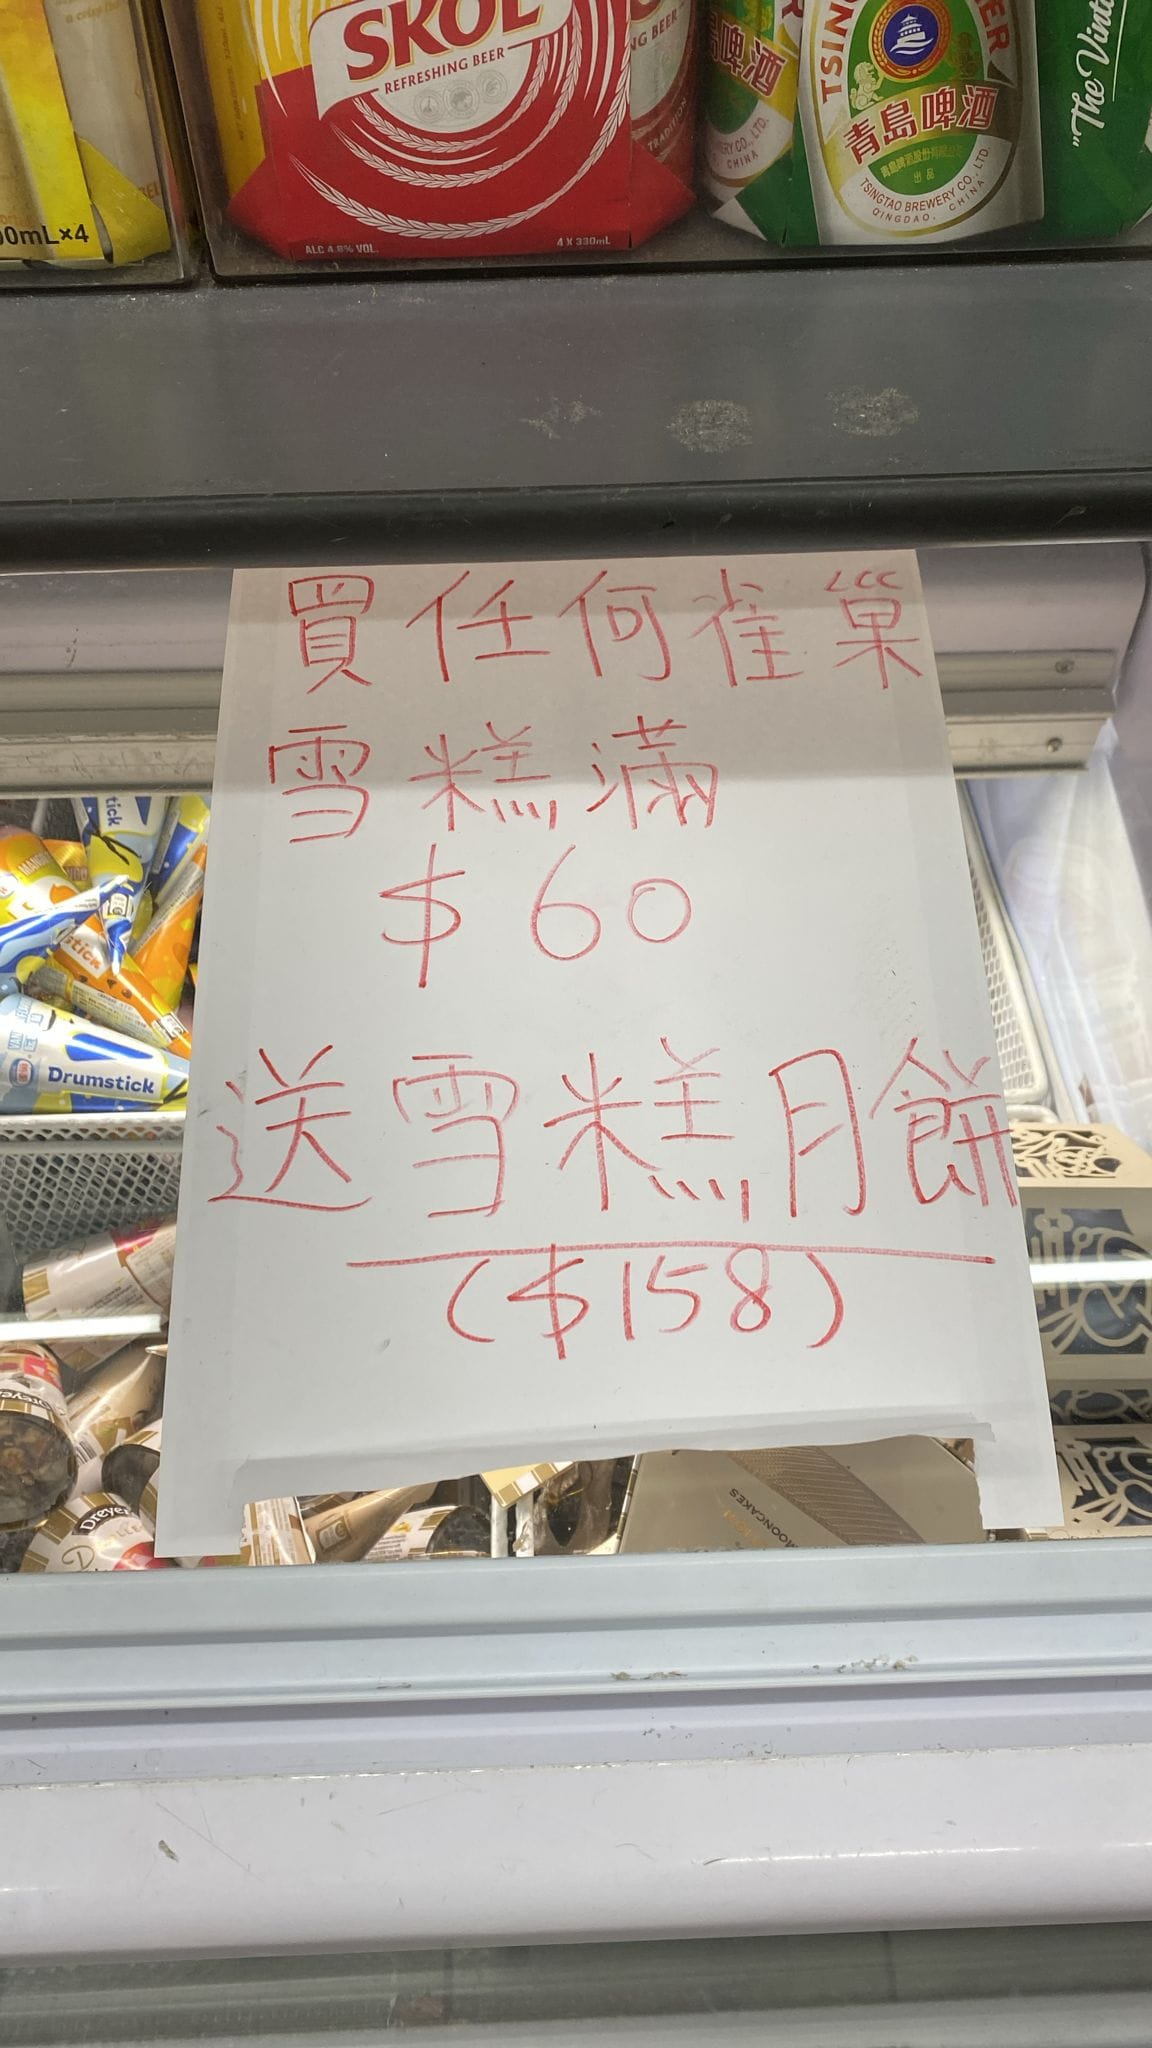 SKOL
REFRESHING BEER
NG BEER
TRADITION
ALC 4.8% VOL.
4 X 330mL
00mL×4
啤酒
CHINA
青島啤酒
青島啤酒股份有限公司
出品
TSINGTAO BREWERY CO., LTD.
QINGDAO, CHINA
"The Vinta
買任何雀巢
雪糕滿
$60
送雪糕月餅
($158)
tick
stick
Drumstick
Dreyer
Dreyer
MOONCAKES